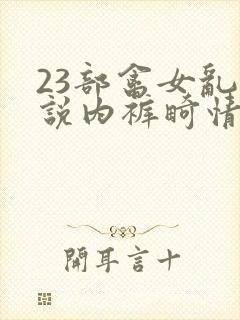 23部畜女乱
說内裤畸情
開耳言十